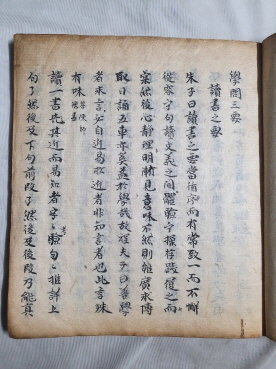 學問三要
讀書之要
朱子曰讀書之要當循序而有常致一而不懈
從容乎句讀文義之間體驗乎操存踐履之
然後心靜理明漸見意味不然則雖廣求博
取日誦五車亦奚益於學哉故程夫子曰善學
者求言必自近易於近者非知言者也此言殊
有味
讀一書先其近而易知者字字驗句句推詳上
句了然後及下句前段了然後及後段乃能真